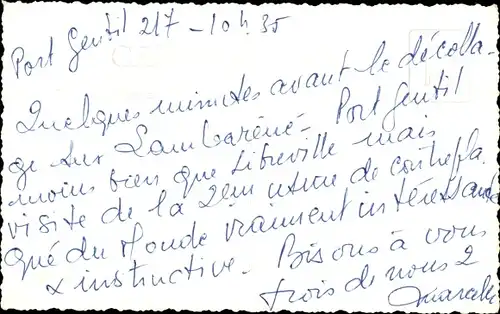 Port Gentil 217 - 10h.35
Quelques minutes avant le décolla-
ge sur Lambaréné. Port Gentil
moins bien que Libreville mais
visite de la 2èm usine de contrepla
qué du Monde vraiment intéressante
& instructive. Bisous à vous
trois de nous 2